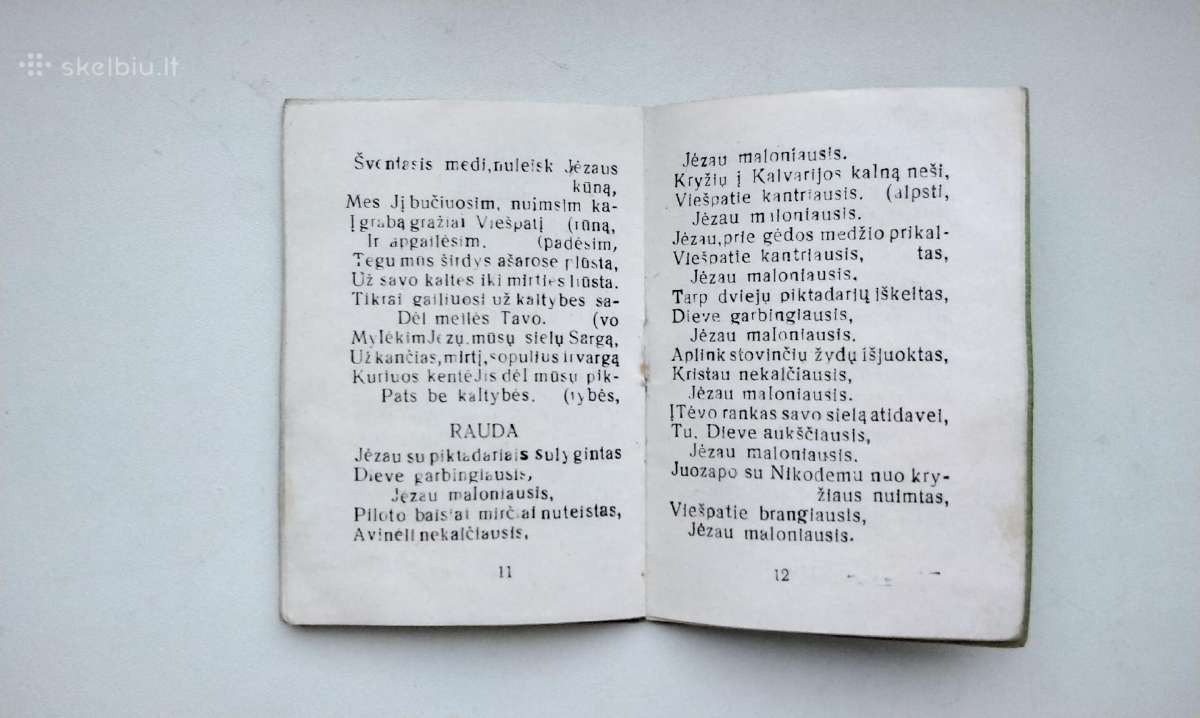 skelbiu.lt
Šventasis medi, nuleisk Jėzaus
kūną,
Mes Jį bučiuosim, nuimsim ka-
Į grabą gražiai Viešpatį (rūną,
Ir apgailėsim. (padėsim,
Tegu mūs širdys ašarose plūsta,
Už savo kaltes iki mirties liūsta.
Tikrai gailiuosi už kaltybes sa-
Dėl meilės Tavo. (vo
Mylėkim Jėzų, mūsų sielų Sargą,
Už kančias, mirtį, sopulius ir vargą
Kuriuos kentėjis dėl mūsų pik-
Pats be kaltybės. (tybės,
RAUDA
Jėzau su piktadariais sulygintas
Dieve garbingiausis,
Jėzau maloniausis,
Piloto baisiai mirčiai nuteistas,
Avinėli nekalčiausis,
11
Jėzau maloniausis.
Kryžių į Kalvarijos kalną neši,
Viešpatie kantriausis. (alpsti,
Jėzau maloniausis.
Jėzau, prie gėdos medžio prikal-
Viešpatie kantriausis, tas,
Jėzau maloniausis.
Tarp dviejų piktadarių iškeltas,
Dieve garbingiausis,
Jėzau maloniausis.
Aplink stovinčių žydų išjuoktas,
Kristau nekalčiausis,
Jėzau maloniausis.
Į Tėvo rankas savo sielą atidavei,
Tu, Dieve aukščiausis,
Jėzau maloniausis.
Juozapo su Nikodemu nuo kry-
žiaus nuimtas,
Viešpatie brangiausis,
Jėzau maloniausis.
12